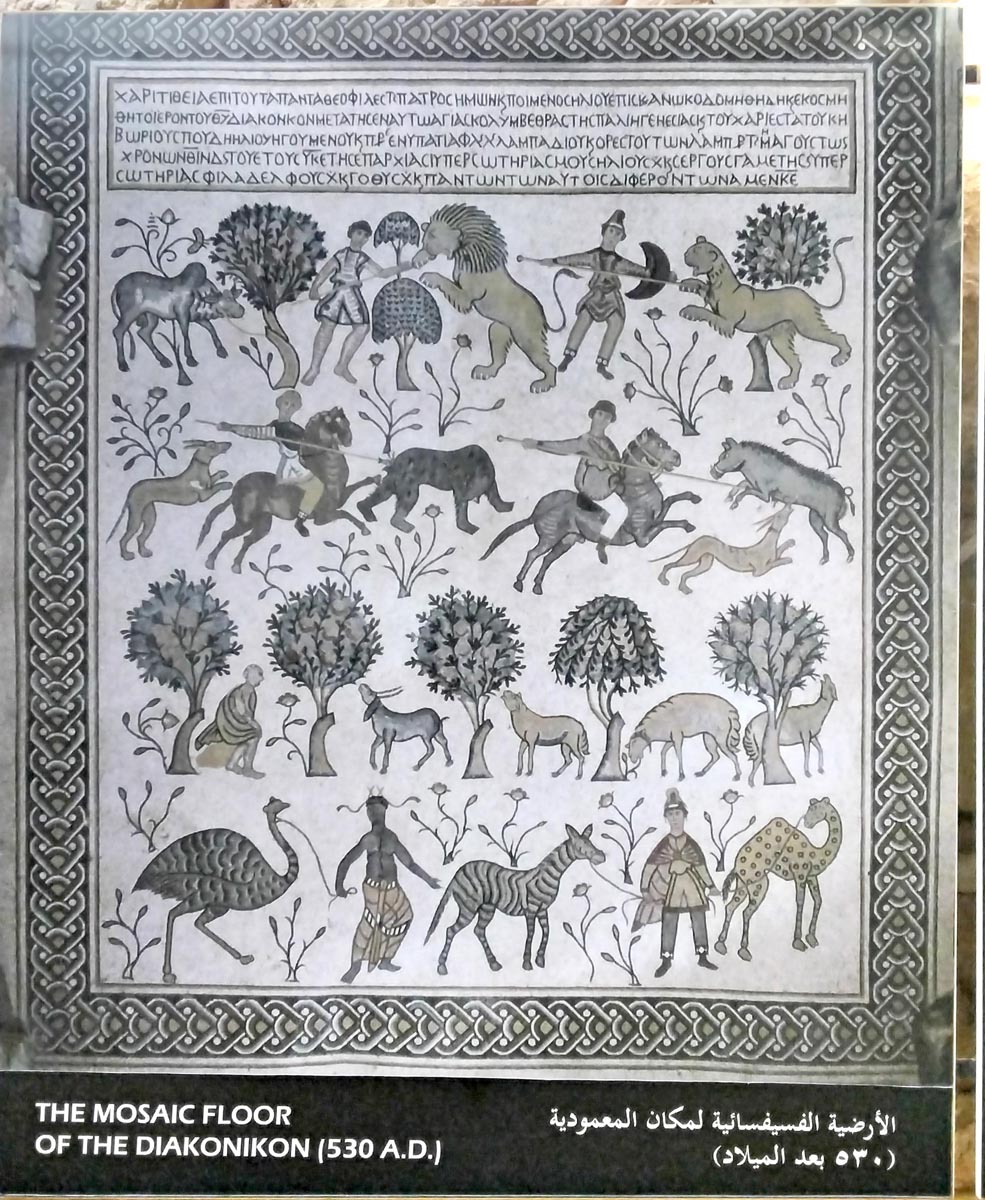 ΧΑΡΙΤΙΘΕΙΑΕΠΙΤΟΥΤΑΠΑΝΤΑΘΕΟΦΙΛΕCΤΠΑΤΡΟCΗΜΩΝΚΠΟΙΜΕΝΟCΗΛΙΟΥΕΠΙCΚΑΝΩΚΟΔΟΜΗΘΗΔΗΚΕΚΟCΜΗ
ΘΗΤΟΪΕΡΟΝΤΟΥΘΥΔΙΑΚΟΝΚΟΝΜΕΤΑΤΗCΕΝΑΥΤΩΑΓΙΑCΚΟΛΥΜΒΕΘΡΑCΤΗCΠΑΛΗΓΕΝΕCΙΑCΚCΤΟΥΧΑΡΙΕCΤΑΤΟΥΚΗ
ΒΩΡΙΟΥCΠΟΥΔΗΗΛΙΟΥΗΓΟΥΜΕΝΟΥΚΠΡΕΝΥΠΑΤΙΑΦΛΧΛΑΜΠΑΔΙΟΥΚΟΡΕCΤΟΥΤΩΝΛΑΜΠΡΤΜΑΓΟΥCΤΩC
ΧΡΟΝΩΝΘΙΝΔCΤΟΥΕΤΟΥCΥΚΕΤΗCΕΠΑΡΧΙΑCΥΠΕΡCΩΤΗΡΙΑCΜΟΥCΗΛΙΟΥCΧΚCΕΡΓΟΥCΓΑΜΕΤΗCCΥΠΕΡ
CΩΤΗΡΙΑCΦΙΛΑΔΕΛΦΟΥCΧΚΓΟΘΥCΧΚΠΑΝΤΩΝΤΩΝΑΥΤΟΙCΔΙΦΕΡΟΝΤΩΝΑΜΕΝΚΕ
THE MOSAIC FLOOR
OF THE DIAKONIKON (530 A.D.)
الأرضية الفسيفسائية لمكان المعمودية
(٥٣٠ بعد الميلاد)